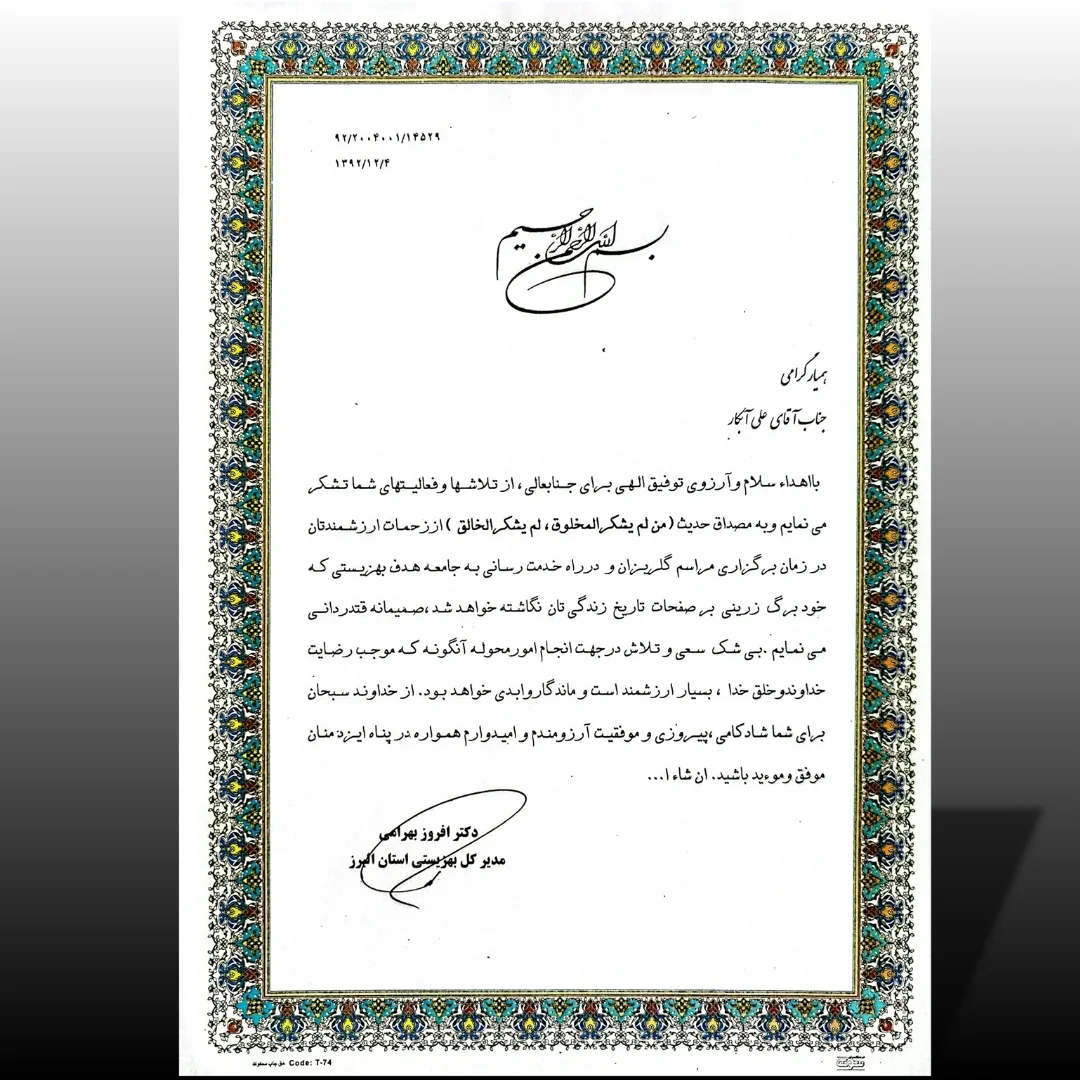 ۹۲/۲۰۰۴۰۰۱/۱۴۵۲۹
۱۳۹۲/۱۲/۴
بسم الله الرحمن الرحیم
همیار گرامی
جناب آقای علی آبکار
بااهداء سلام وآرزوی توفیق الهی برای جنابعالی، از تلاشها وفعالیتهای شما تشکر
می نمایم وبه مصداق حدیث (من لم یشکرالمخلوق، لم یشکرالخالق ) اززحمات ارزشمندتان
در زمان برگزاری مراسم گلریزان و درراه خدمت رسانی به جامعه هدف بهزیستی که
خود برگ زرینی بر صفحات تاریخ زندگی تان نگاشته خواهد شد،صمیمانه قدردانی
می نمایم .بی شک سعی و تلاش درجهت انجام امورمحوله آنگونه که موجب رضایت
خداوندوخلق خدا ، بسیار ارزشمند است و ماندگاروابدی خواهد بود. از خداوند سبحان
برای شما شادکامی ،پیروزی و موفقیت آرزومندم و امیدوارم همواره در پناه ایزد منان
موفق وموءید باشید. ان شاء ا...
دکتر افروز بهرامی
مدیر کل بهزیستی استان البرز
حق چاپ محفوظ Code: T-74